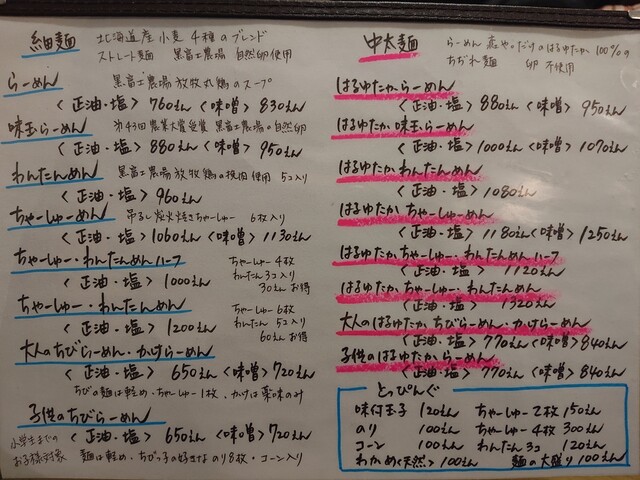 細麺
北海道産小麦4種のブレンド
ストレート麺 黒富士農場 自然卵使用
らーめん 黒富士農場放牧丸鶏のスープ
〈正油・塩〉760えん〈味噌〉830えん
味玉らーめん 第43回農業大賞受賞 黒富士農場の自然卵
〈正油・塩〉880えん〈味噌〉950えん
わんたんめん 黒富士農場 放牧鶏の挽肉使用 5コ入り
〈正油・塩〉960えん
ちゃーしゅーめん 吊るし炭火焼きちゃーしゅー 6枚入り
〈正油・塩〉1060えん〈味噌〉1130えん
ちゃーしゅー・わんたんめんハーフ
〈正油・塩〉1000えん
ちゃーしゅー4枚
わんたん3コ入り
30えんお得
ちゃーしゅー・わんたんめん
〈正油・塩〉1200えん
ちゃーしゅー6枚
わんたん5コ入り
60えんお得
大人のちびらーめん・かけらーめん
〈正油・塩〉650えん〈味噌〉720えん
ちびの麺は軽め・ちゃーしゅー1枚、かけは薬味のみ
子供のちびらーめん
小学生までの
お子様対象
〈正油・塩〉650えん〈味噌〉720えん
麺は軽め・ちびっ子の好きなのり8枚・コーン入り
中太麺
らーめん
だけのはるゆたか100%の
ちぢれ麺 卵不使用
はるゆたからーめん
〈正油・塩〉880えん〈味噌〉950えん
はるゆたか味玉らーめん
〈正油・塩〉1000えん〈味噌〉1070えん
はるゆたかわんたんめん
〈正油・塩〉1080えん
はるゆたかちゃーしゅーめん
〈正油・塩〉1180えん〈味噌〉1250えん
はるゆたかちゃーしゅー・わんたんめんハーフ
〈正油・塩〉1120えん
はるゆたかちゃーしゅー・わんたんめん
〈正油・塩〉1320えん
大人のはるゆたかちびらーめん・かけらーめん
〈正油・塩〉770えん〈味噌〉840えん
子供のはるゆたからーめん
〈正油・塩〉770えん〈味噌〉840えん
とっぴんぐ
味付玉子 120えん ちゃーしゅー2枚 150えん
のり 100えん ちゃーしゅー4枚 300えん
コーン 100えん わんたん3コ 120えん
わかめ〈天然〉100えん 麺の大盛り 100えん